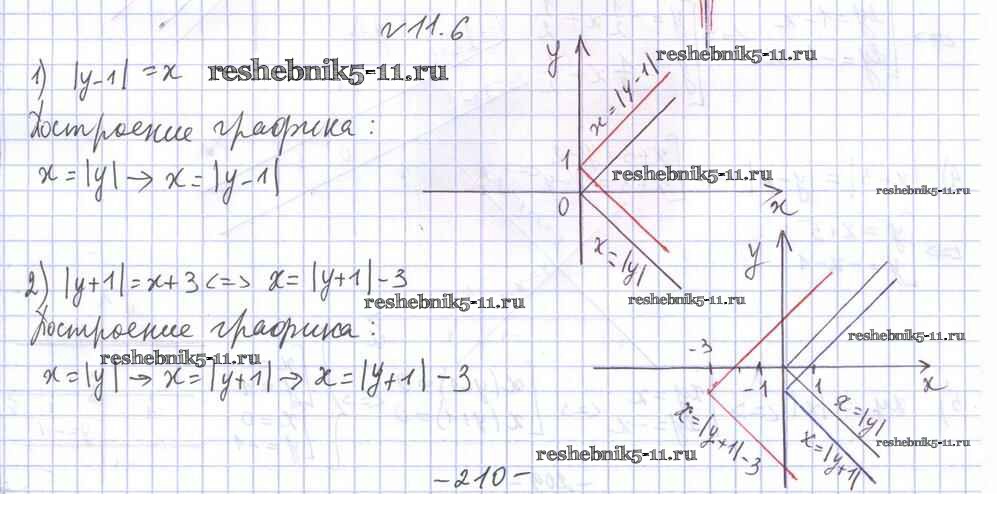 № 11.6
1) |y-1| = x
reshebnik5-11.ru
Построение графика:
x = |y| → x = |y-1|
y
reshebnik5-11.ru
x = |y-1|
1
reshebnik5-11.ru
reshebnik5-11.ru
0
x
x = |y|
reshebnik5-11.ru
2) |y+1| = x+3 <=> x = |y+1| -3
reshebnik5-11.ru
Построение графика:
reshebnik5-11.ru
x = |y| → x = |y+1| → x = |y+1| -3
y
reshebnik5-11.ru
-3
-1
1
x
x = |y|
x = |y+1|
x = |y+1| -3
reshebnik5-11.ru
reshebnik5-11.ru
-210-